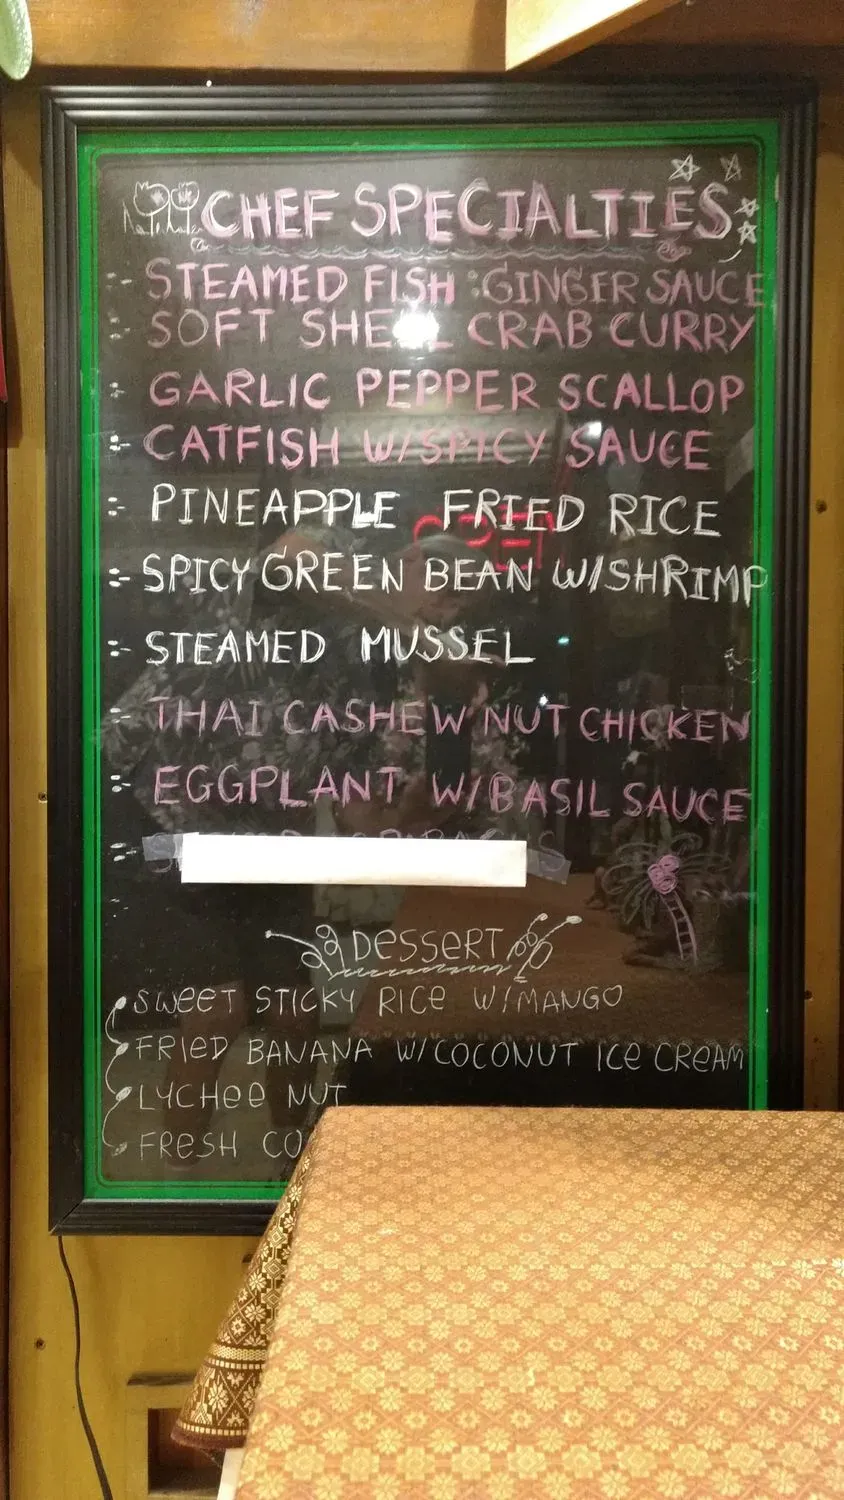 CHEF SPECIALTIES
STEAMED FISH : GINGER SAUCE
SOFT SHELL CRAB CURRY
GARLIC PEPPER SCALLOP
CATFISH W/SPICY SAUCE
PINEAPPLE FRIED RICE
SPICY GREEN BEAN W/SHRIMP
STEAMED MUSSEL
THAI CASHEW NUT CHICKEN
EGGPLANT W/BASIL SAUCE
DESSERT
SWEET STICKY RICE W/MANGO
FRIED BANANA W/COCONUT ICE CREAM
LYCHEE NUT
FRESH CO